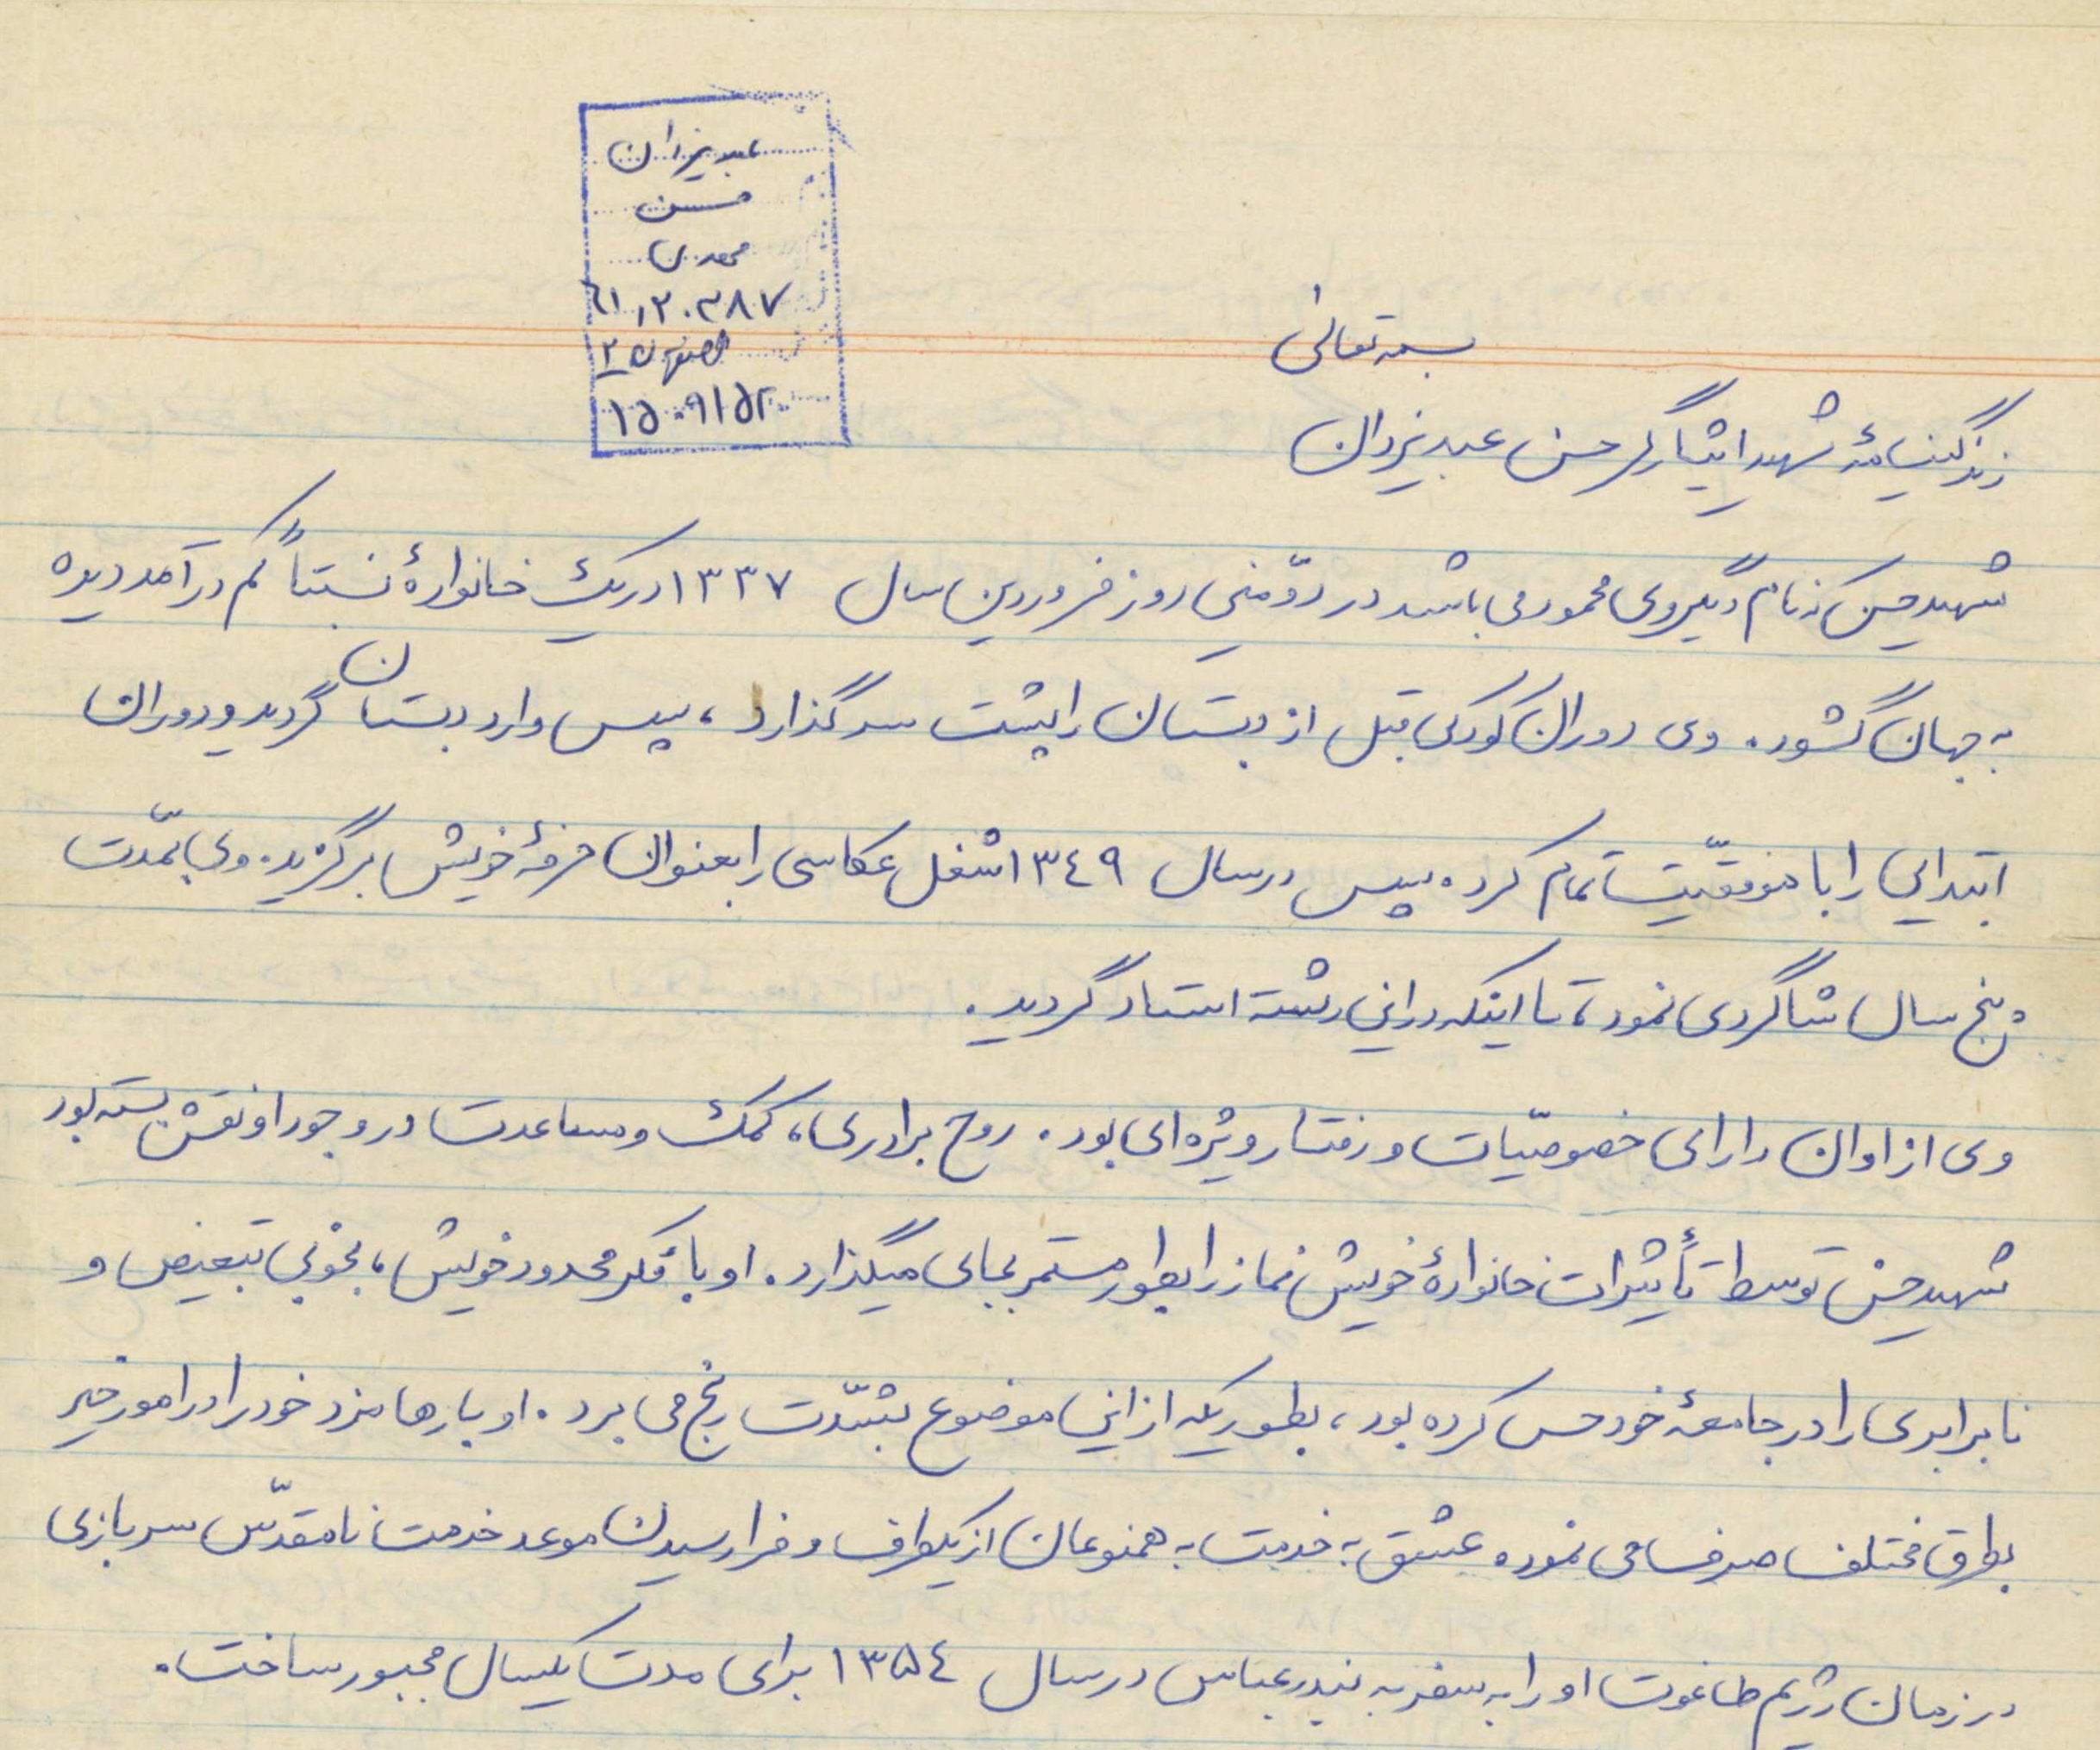 عبدیزدان
حسن
مهدی
۶۱,۲۰۳۸۷
اصفهان ۲
۱۵۰۹۱۵۲
بسمه تعالی
زندگینامهٔ شهید ایثارگر حسن عبدیزدان
شهید حسن که نام دیگر وی محمود می باشد در دوّمین روز فروردین سال ۱۳۳۷ در یک خانوادهٔ نسبتاً کم درآمد دیده
به جهان گشود. وی دوران کودکی قبل از دبستان را پشت سر گذارد، سپس وارد دبستان گردید و دوران
ابتدایی را با موفقیّت تمام کرد. سپس در سال ۱۳۴۹ شغل عکاسی را بعنوان حرفهٔ خویش برگزید. وی بمدّت
پنج سال شاگردی نمود، تا اینکه در این رشته استاد گردید.
وی از اوان دارای خصوصیّات و رفتار ویژه ای بود. روح برادری، کمک و مساعدت در وجود او نقش بسته بود
شهید حسن توسط تأثیرات خانوادهٔ خویش نماز را بطور مستمر بجای میگذارد. او با فکر محدود خویش، بخوبی تبعیض و
نابرابری را در جامعهٔ خود حس کرده بود، بطوریکه از این موضوع بشدّت رنج می برد. او بارها مزد خود را در امور خیر
بطرق مختلف صرف می نمود. عشق به خدمت به همنوعان از یکطرف و فرارسیدن موعد خدمت نامقدّس سربازی
در زمان رژیم طاغوت او را به سفر به بندرعباس در سال ۱۳۵۴ برای مدت یکسال مجبور ساخت.